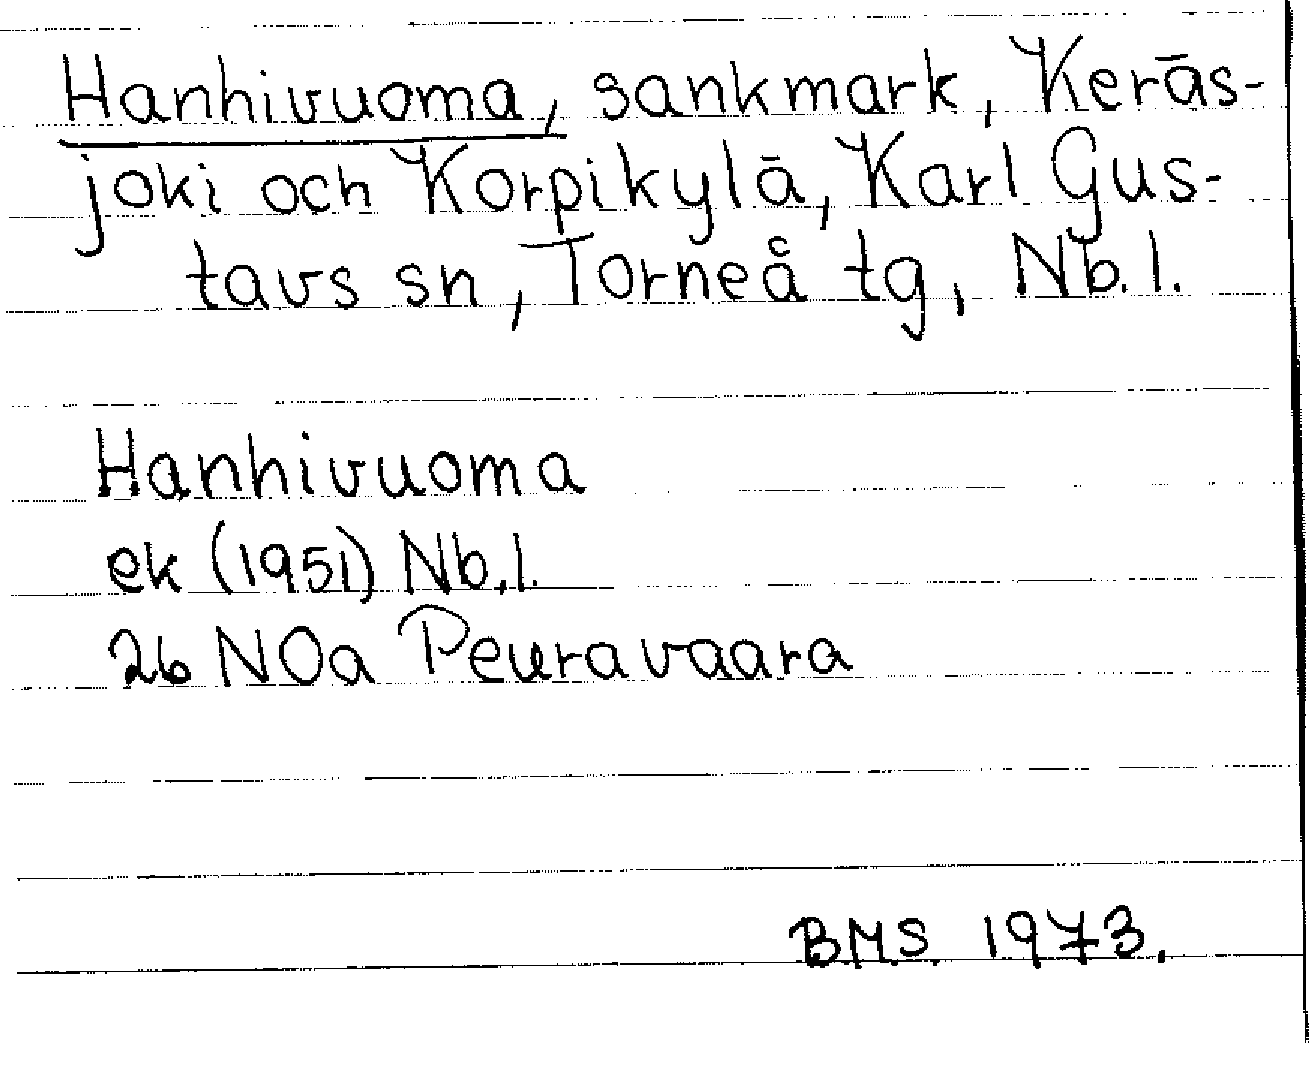 Hanhivuoma, sankmark, Keräs-
joki och Korpikylä, Karl Gus-
tavs sn, Torneå tg, Nb. l.
Hanhivuoma
ek (1951) Nb. l.
26 NOa Peuravaara
B.M.S. 1973.